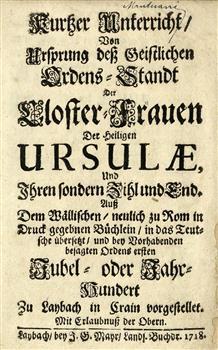 Kurtzer Unterricht/
Von
Ursprung deß Geistlichen
Ordens-Standt
Der
Closter-Frauen
Der Heiligen
URSULÆ,
Und
Ihren sondern Zihl und End.
Auß
Dem Wällischen / neulich zu Rom in
Druck gegebnen Büchlein / in das Teut-
sche übersetzt / und bey Vorhabenden
besagten Ordens ersten
Jubel- oder Jahr-
Hundert
Zu Laybach in Crain vorgestellet.
Mit Erlaubnuß der Obern.
Laybach / bey J. G. Mayr / Landl. Buchdr. 1718.